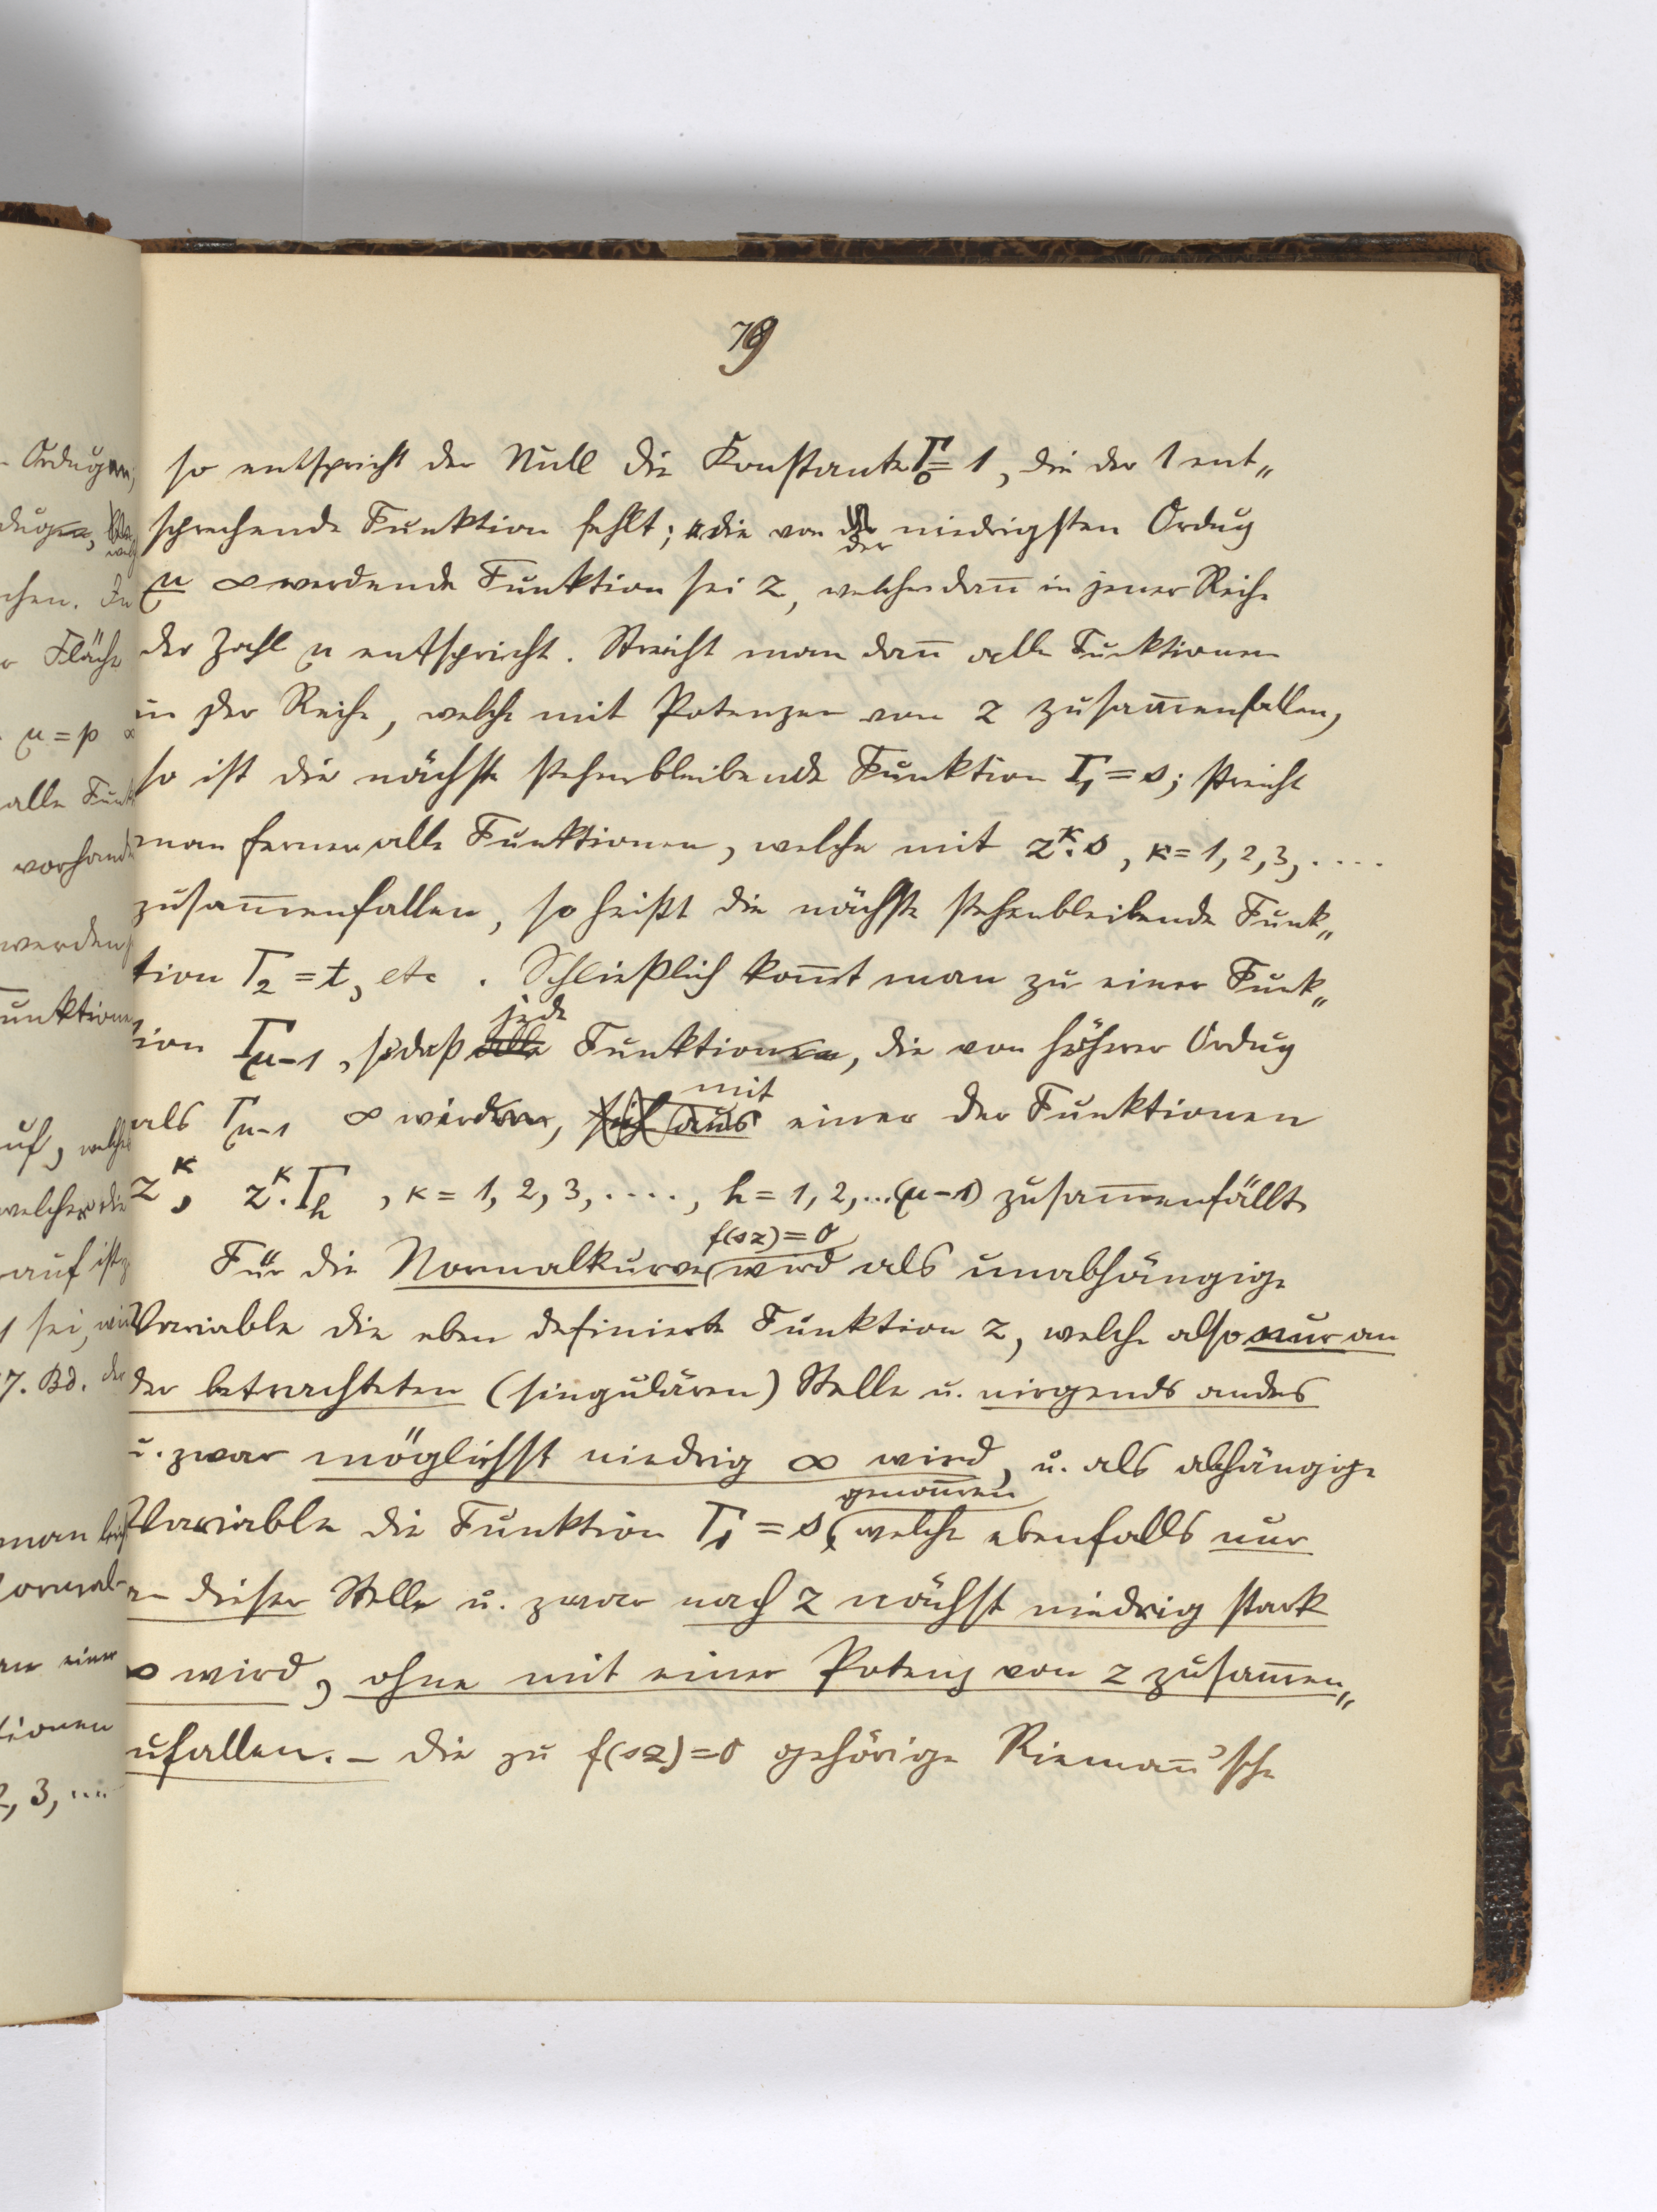 79
so entspricht der Null die Konstante Γ₀ = 1, die der 1 ent„
sprechende Funktion fehlt; die von der niedrigsten Ordug
μ ∞ werdende Funktion sei z, welcher dan̄ in jener Reihe
der Zahl μ entspricht. Streicht man dan̄ alle Funktionen
in der Reihe, welche mit Potenzen von z zusam̄enfallen,
so ist die nächste stehenbleibende Funktion Γ₁ = s; streicht
man ferner alle Funktionen, welche mit z^κ·s, κ = 1, 2, 3, ....
zusam̄enfallen, so heißt die nächste stehenbleibende Funk„
tion Γ₂ = t, etc. Schließlich kom̄t man zu einer Funk„
tion Γμ-1, sodaß jede Funktion, die von höherer Ordug
als Γμ-1 ∞ wird, mit einer der Funktionen
z^κ, z^κ·Γh, κ = 1, 2, 3, ...., h = 1, 2, ...(μ-1) zusam̄enfällt.
Für die Normalkurve f(sz)=0 wird als unabhängige
Variable die eben definierte Funktion z, welche also nur an
der betrachteten (singulären) Stelle u. nirgends anders
u. zwar möglichst niedrig ∞ wird, u. als abhängige
Variable die Funktion Γ₁ = s genom̄en, welche ebenfalls nur
an dieser Stelle u. zwar nach z nächst niedrig stark
∞ wird, ohne mit einer Potenz von z zusam̄en„
zufallen. – Die zu f(sz)=0 gehörige Rieman̄'sche
- Ordugen,
Fläche
μ = p
alle Funk
vorhand
werden
unktion
uf, welche
welcher die
auf ist
sei, wi
7. Bd. der
man
ormal-
einer
tionen
2, 3, ....